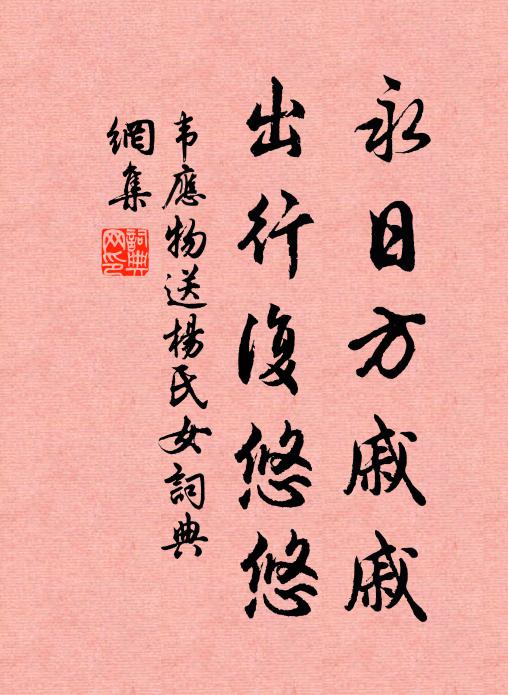 永日方戚戚
出行復悠悠
韦應物送楊氏女詞典
網集
詞典網印